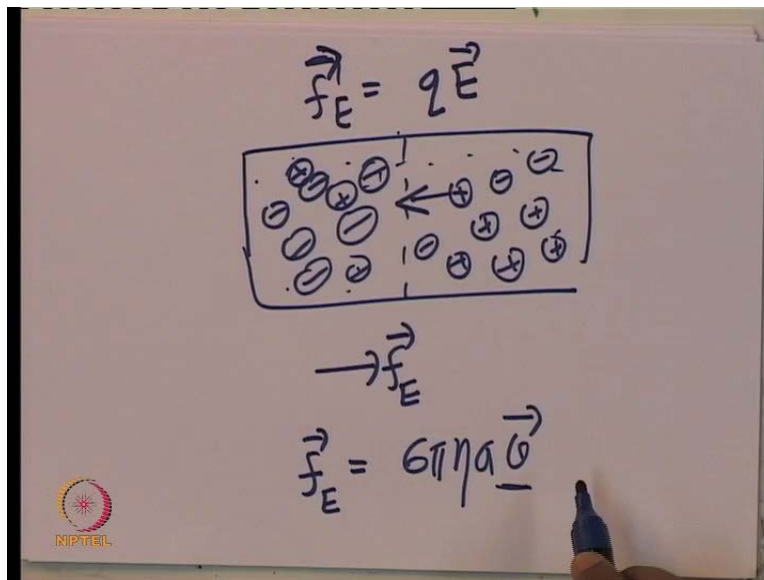 f⃗_E = qE⃗
→ f⃗_E
f⃗_E = 6πηav⃗
NPTEL